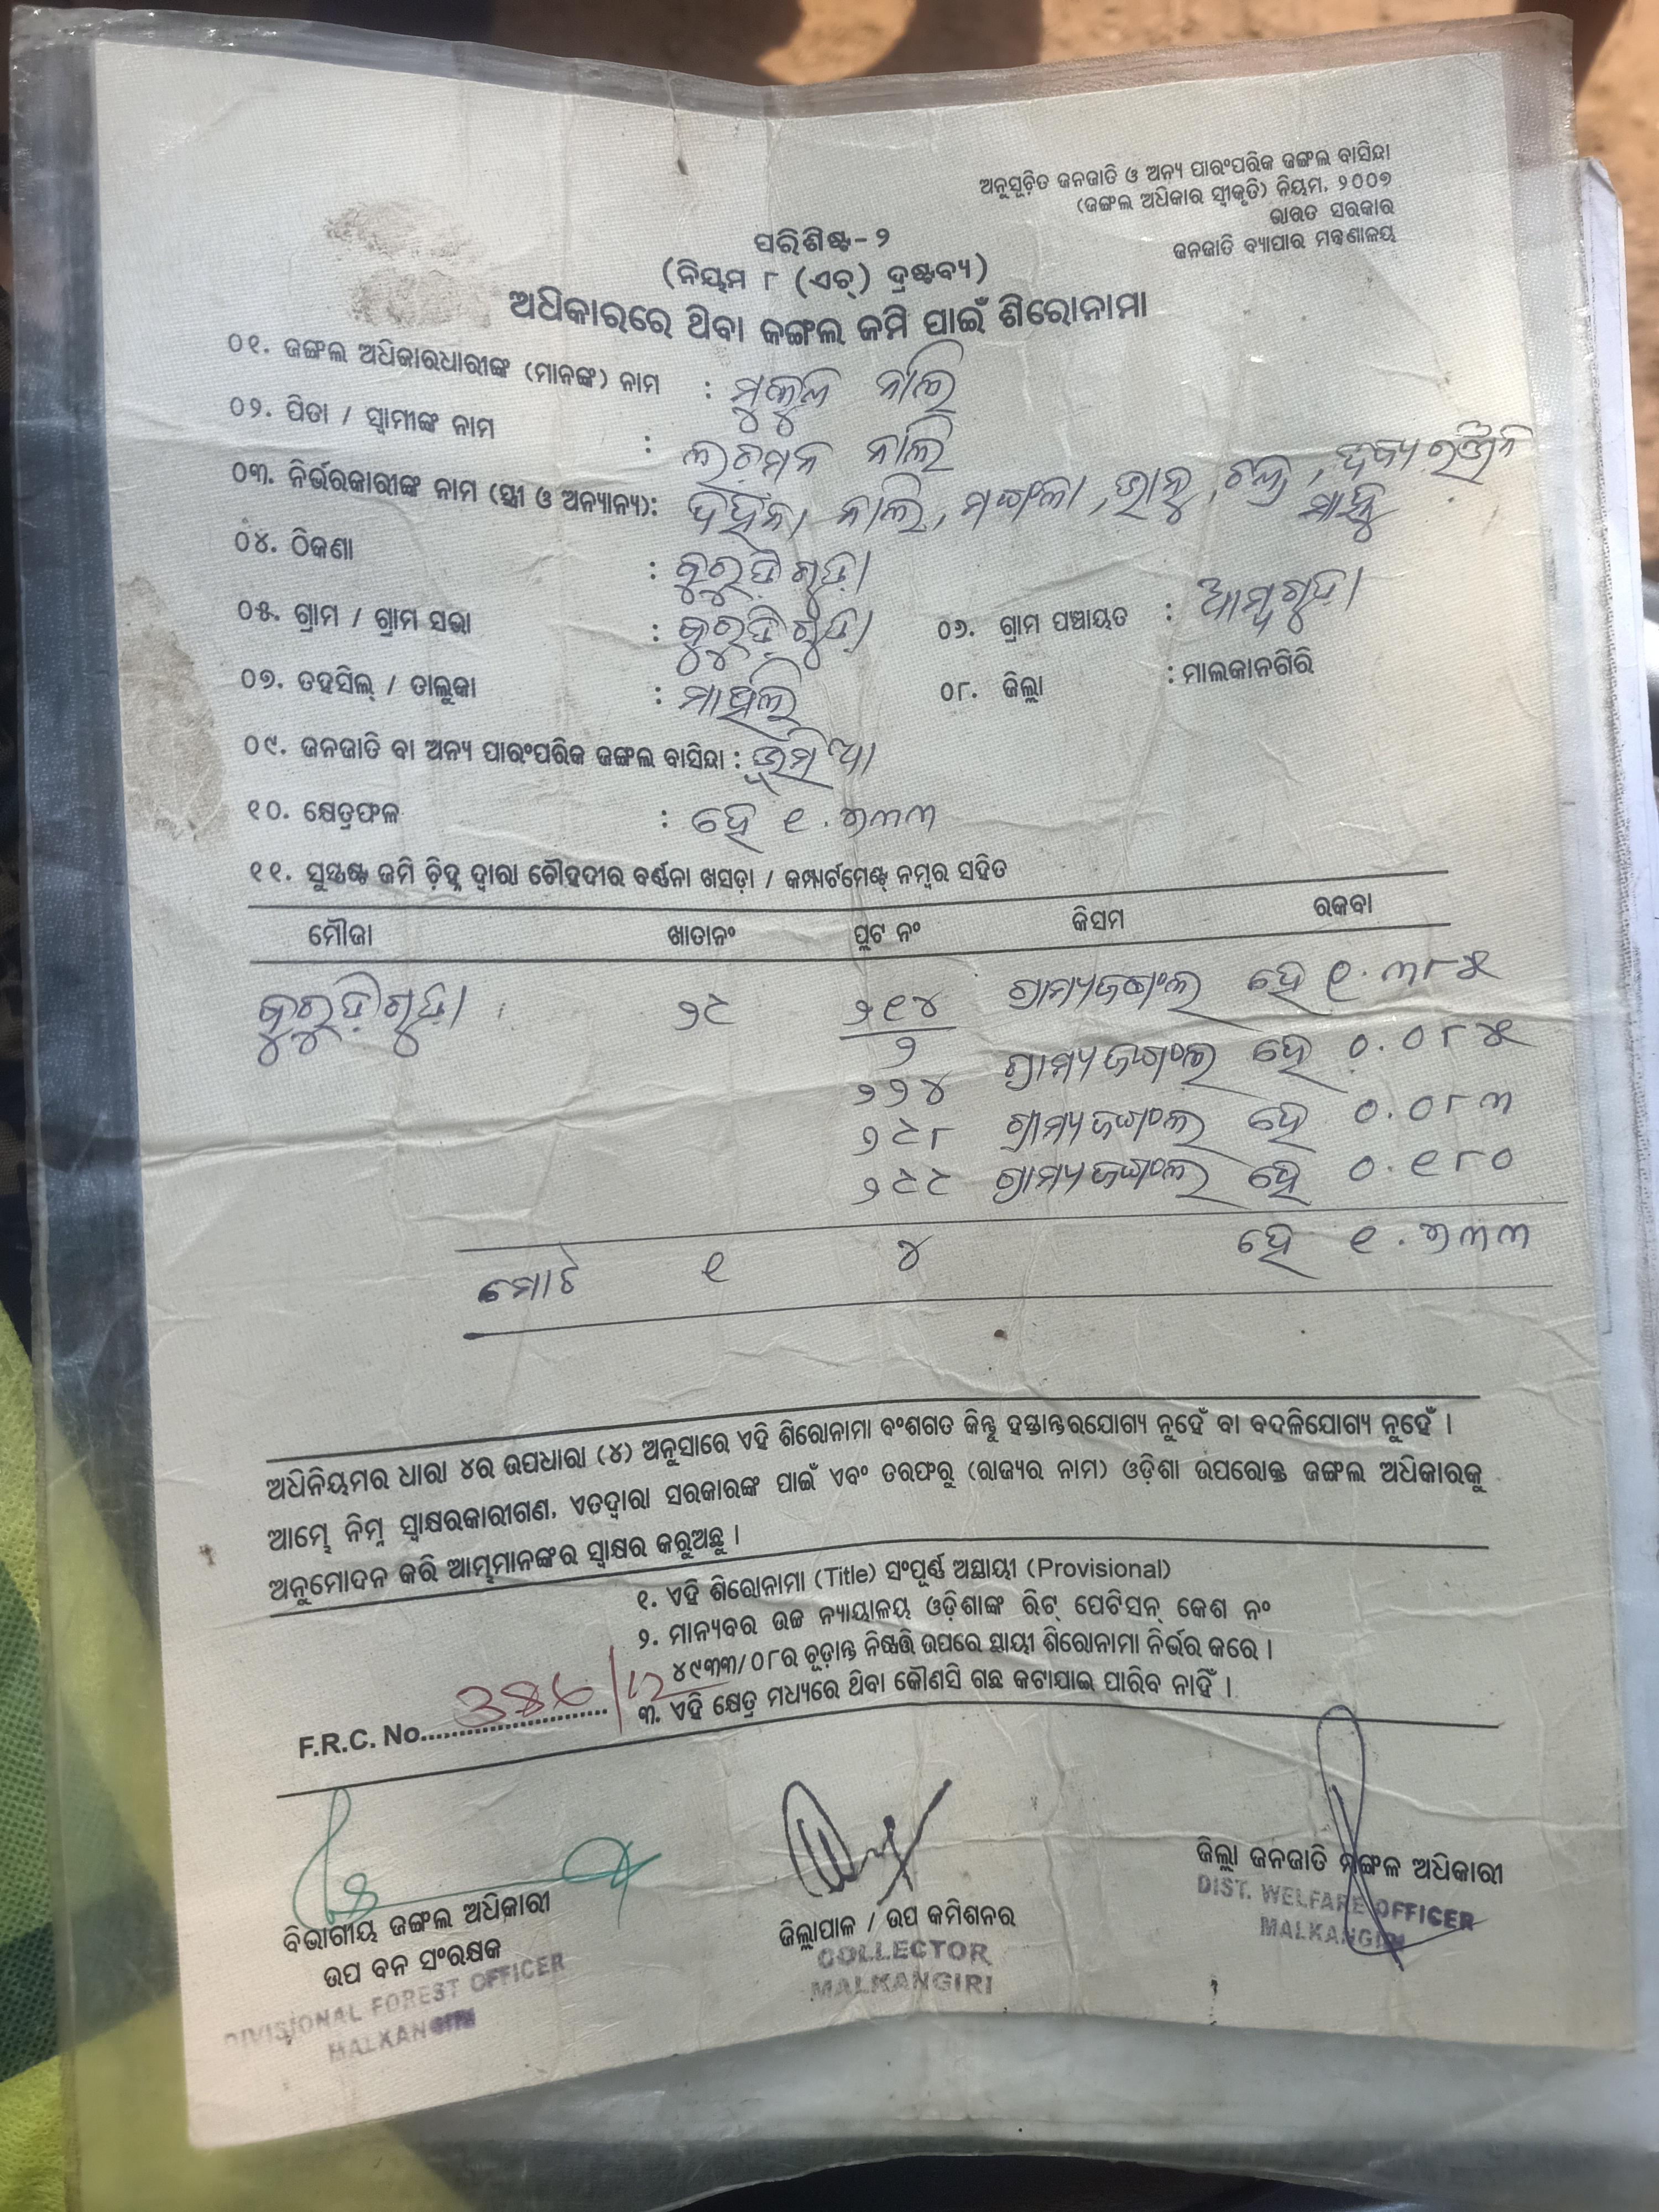 ଅନୁସୂଚିତ ଜନଜାତି ଓ ଅନ୍ୟ ପାରଂପରିକ ଜଙ୍ଗଲ ବାସିନ୍ଦା
(ଜଙ୍ଗଲ ଅଧିକାର ସ୍ୱୀକୃତି) ନିୟମ, ୨୦୦୭
ଭାରତ ସରକାର
ଜନଜାତି ବ୍ୟାପାର ମନ୍ତ୍ରଣାଳୟ
ପରିଶିଷ୍ଟ-୨
(ନିୟମ ୮ (ଏଚ୍) ଦ୍ରଷ୍ଟବ୍ୟ)
ଅଧିକାରରେ ଥିବା ଜଙ୍ଗଲ ଜମି ପାଇଁ ଶିରୋନାମା
୦୧. ଜଙ୍ଗଲ ଅଧିକାରଧାରୀଙ୍କ (ମାନଙ୍କ) ନାମ : ମୁକୁଲି ନାଲି
୦୨. ପିତା / ସ୍ୱାମୀଙ୍କ ନାମ : ଲଚମନ ନାଲି
୦୩. ନିର୍ଭରକାରୀଙ୍କ ନାମ (ସ୍ତ୍ରୀ ଓ ଅନ୍ୟାନ୍ୟ): ନାଲି, ମଙ୍ଗଳା,
୦୪. ଠିକଣା : କୁରୁଡ଼ିଗୁଡ଼ା
୦୫. ଗ୍ରାମ / ଗ୍ରାମ ସଭା : କୁରୁଡ଼ିଗୁଡ଼ା ୦୬. ଗ୍ରାମ ପଞ୍ଚାୟତ : ଆମ୍ବଗୁଡ଼ା
୦୭. ତହସିଲ୍ / ତାଲୁକା : ମାଥିଲି ୦୮. ଜିଲ୍ଲା : ମାଲକାନଗିରି
୦୯. ଜନଜାତି ବା ଅନ୍ୟ ପାରଂପରିକ ଜଙ୍ଗଲ ବାସିନ୍ଦା : ଭୂମିଆ
୧୦. କ୍ଷେତ୍ରଫଳ : ହେ ୧.୭୩୩
୧୧. ସୁସ୍ପଷ୍ଟ ଜମି ଚିହ୍ନ ଦ୍ୱାରା ଚୌହଦୀର ବର୍ଣ୍ଣନା ଖସଡ଼ା / କମ୍ପାର୍ଟମେଣ୍ଟ୍ ନମ୍ବର ସହିତ
ମୌଜା ଖାତାନଂ ପ୍ଲଟ ନଂ କିସମ ରକବା
କୁରୁଡ଼ିଗୁଡ଼ା ୨୯ ୨୧୪ ଗ୍ରାମ୍ୟଜଙ୍ଗଲ ହେ ୧.୩୮୫
୨
୨୨୪ ଗ୍ରାମ୍ୟଜଙ୍ଗଲ ହେ ୦.୦୮୫
୨୯୮ ଗ୍ରାମ୍ୟଜଙ୍ଗଲ ହେ ୦.୦୮୩
୨୯୯ ଗ୍ରାମ୍ୟଜଙ୍ଗଲ ହେ ୦.୧୮୦
ମୋଟ ୧ ୪ ହେ ୧.୭୩୩
ଅଧିନିୟମର ଧାରା ୪ର ଉପଧାରା (୪) ଅନୁସାରେ ଏହି ଶିରୋନାମା ବଂଶଗତ କିନ୍ତୁ ହସ୍ତାନ୍ତରଯୋଗ୍ୟ ନୁହେଁ ବା ବଦଳିଯୋଗ୍ୟ ନୁହେଁ ।
ଆମ୍ଭେ ନିମ୍ନ ସ୍ୱାକ୍ଷରକାରୀଗଣ, ଏତଦ୍ୱାରା ସରକାରଙ୍କ ପାଇଁ ଏବଂ ତରଫରୁ (ରାଜ୍ୟର ନାମ) ଓଡ଼ିଶା ଉପରୋକ୍ତ ଜଙ୍ଗଲ ଅଧିକାରକୁ
ଅନୁମୋଦନ କରି ଆମ୍ଭମାନଙ୍କର ସ୍ୱାକ୍ଷର କରୁଅଛୁ ।
୧. ଏହି ଶିରୋନାମା (Title) ସଂପୂର୍ଣ୍ଣ ଅସ୍ଥାୟୀ (Provisional)
୨. ମାନ୍ୟବର ଉଚ୍ଚ ନ୍ୟାୟାଳୟ ଓଡ଼ିଶାଙ୍କ ରିଟ୍ ପେଟିସନ୍ କେଶ ନଂ
୪୯୩୩/୦୮ର ଚୂଡ଼ାନ୍ତ ନିଷ୍ପତ୍ତି ଉପରେ ସ୍ଥାୟୀ ଶିରୋନାମା ନିର୍ଭର କରେ ।
୩. ଏହି କ୍ଷେତ୍ର ମଧ୍ୟରେ ଥିବା କୌଣସି ଗଛ କଟାଯାଇ ପାରିବ ନାହିଁ ।
F.R.C. No.
ବିଭାଗୀୟ ଜଙ୍ଗଲ ଅଧିକାରୀ
ଉପ ବନ ସଂରକ୍ଷକ
DIVISIONAL FOREST OFFICER
MALKANGIRI
ଜିଲ୍ଲାପାଳ / ଉପ କମିଶନର
COLLECTOR
MALKANGIRI
ଜିଲ୍ଲା ଜନଜାତି ମଙ୍ଗଳ ଅଧିକାରୀ
DIST. WELFARE OFFICER
MALKANGIRI